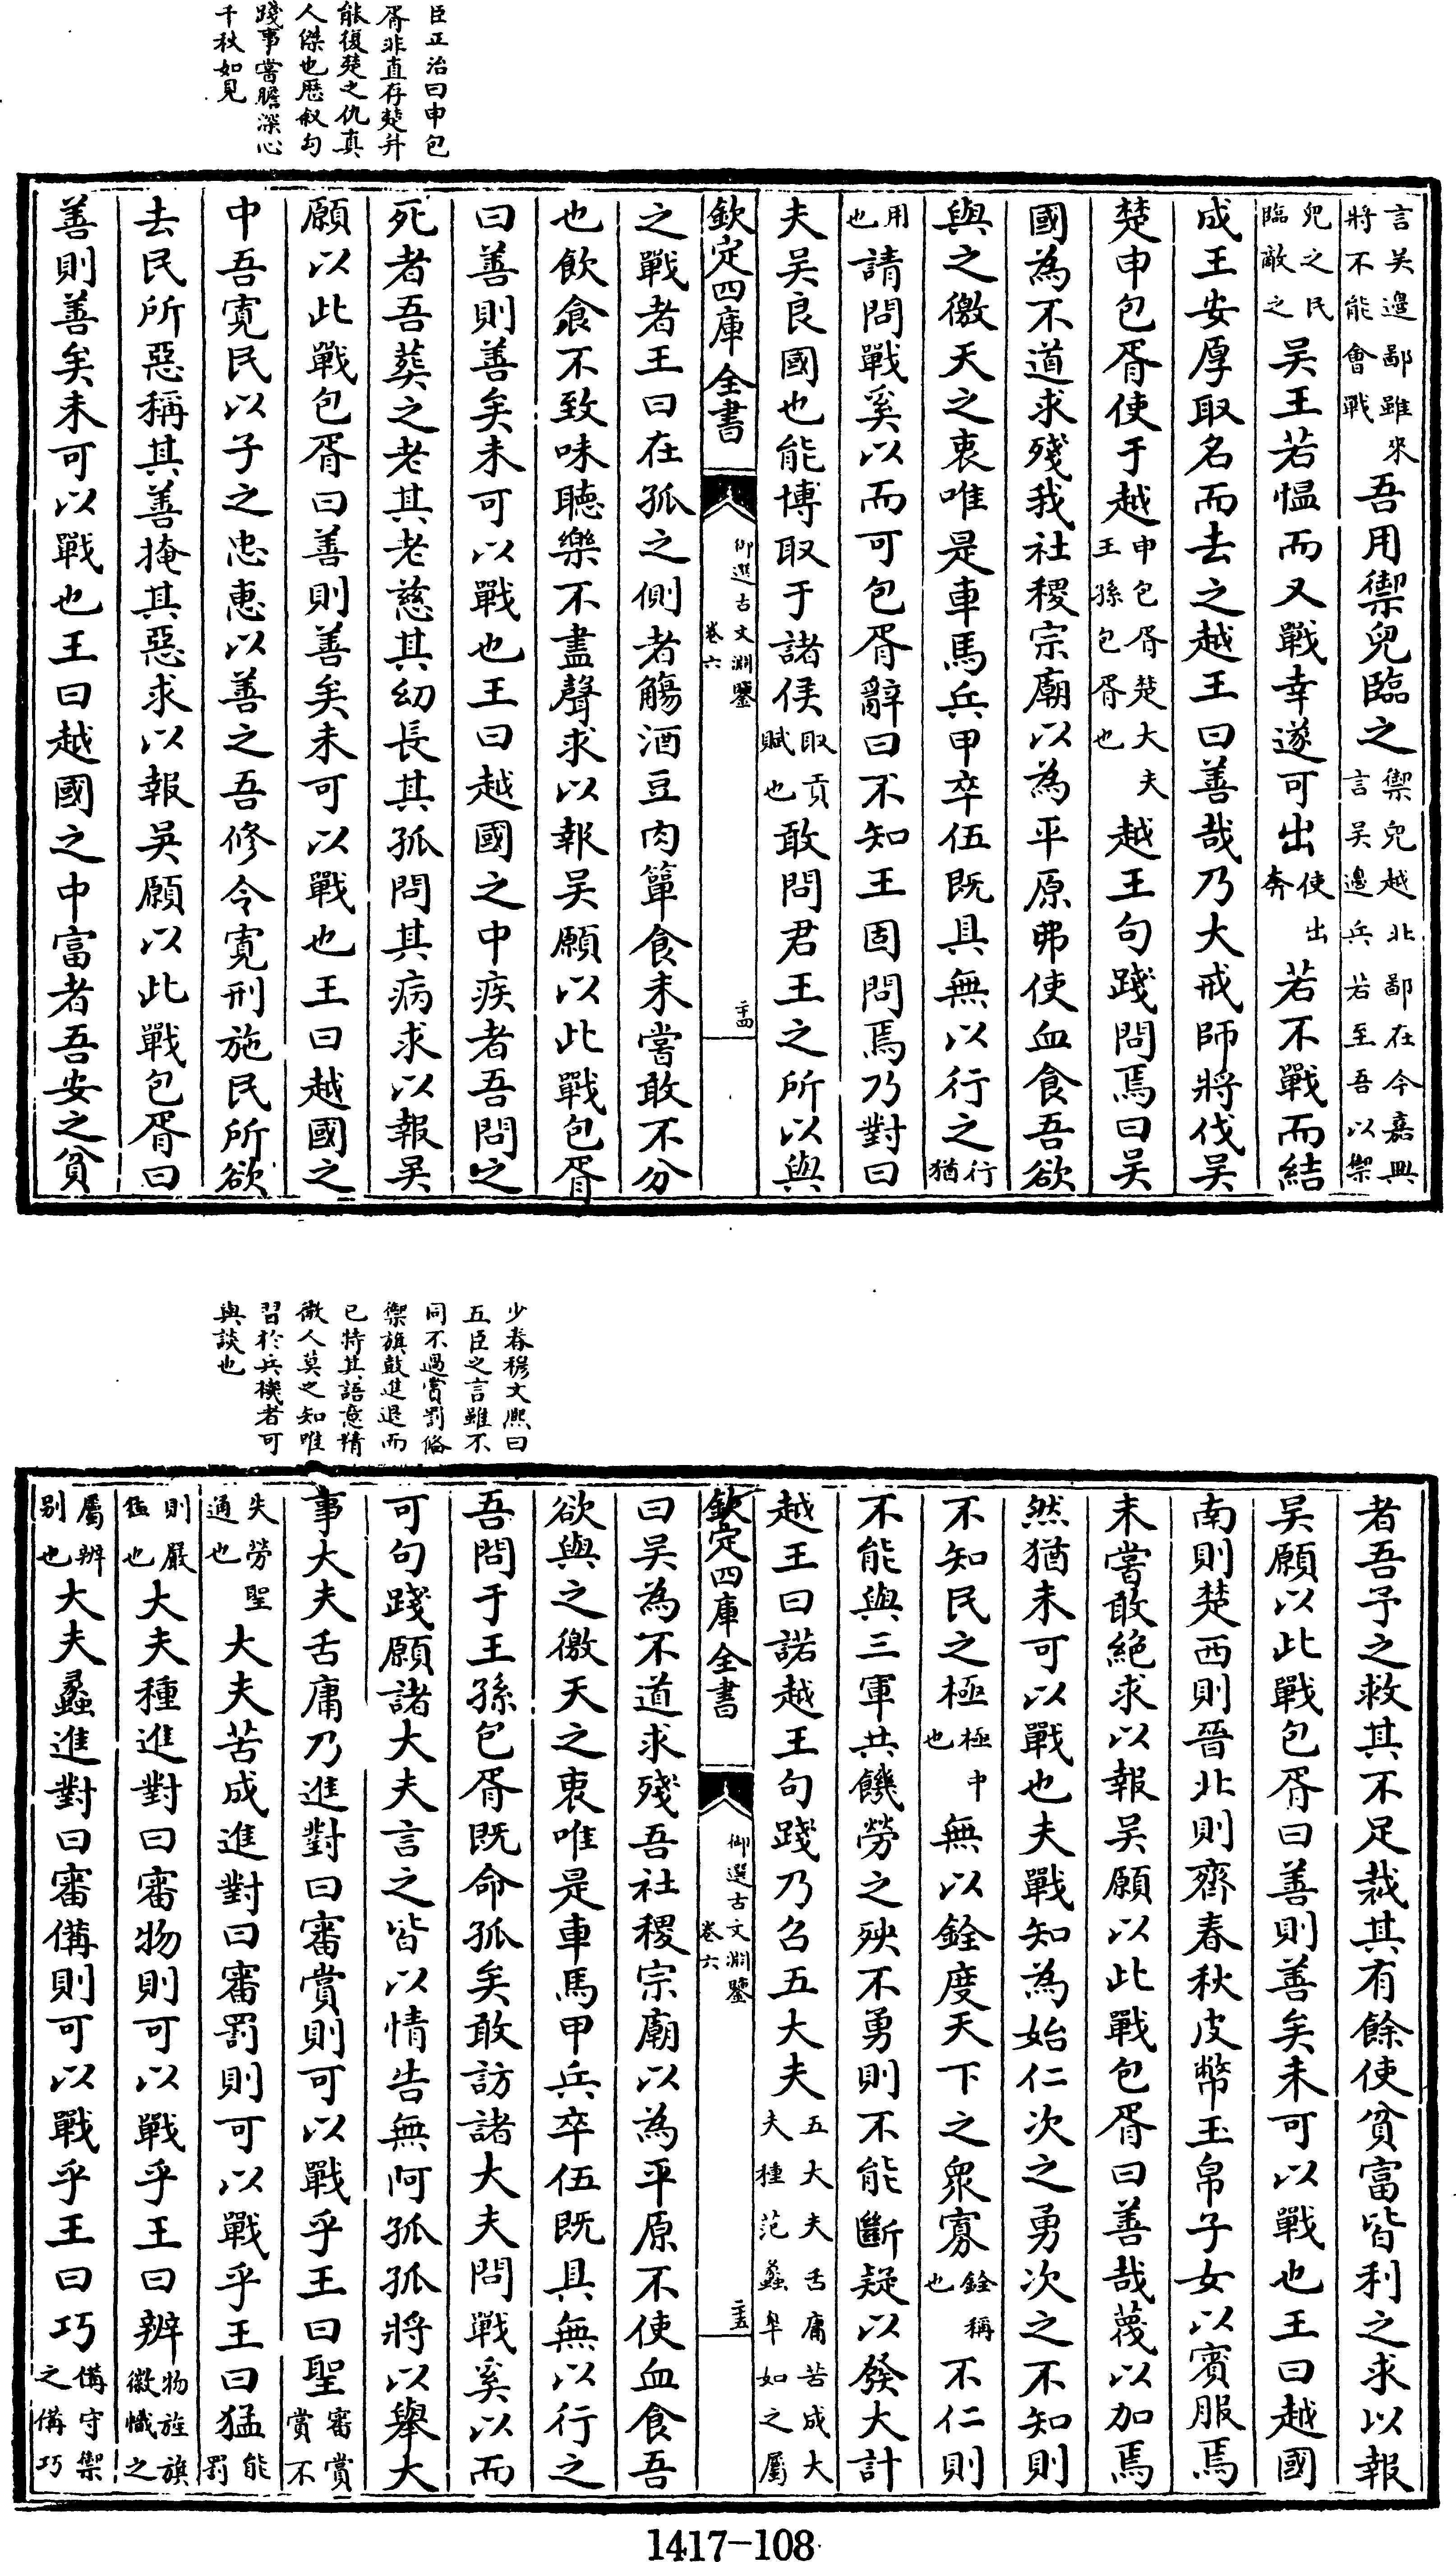 臣正治曰申包
胥非直存楚并
能復楚之仇真
人傑也歷叙勾
踐事嘗膽深心
千秋如見
言吴邊鄙雖來
將不能會戰吾用禦兒臨之禦兒越北鄙在今嘉興
言吴邊兵若至吾以禦
兒之民
臨敵之吴王若愠而又戰幸遂可出使出
奔若不戰而結
成王安厚取名而去之越王曰善哉乃大戒師將伐吴
楚申包胥使于越申包胥楚大夫
王孫包胥也越王句踐問焉曰吴
國為不道求殘我社稷宗廟以為平原弗使血食吾欲
與之徼天之衷唯是車馬兵甲卒伍既具無以行之行
猶
用
也請問戰奚以而可包胥辭曰不知王固問焉乃對曰
夫吴良國也能博取于諸侯取貢
賦也敢問君王之所以與
欽定四庫全書
御選古文淵鑒
卷六
二十四
之戰者王曰在孤之側者觴酒豆肉簞食未嘗敢不分
也飲食不致味聽樂不盡聲求以報吴願以此戰包胥
曰善則善矣未可以戰也王曰越國之中疾者吾問之
死者吾葬之老其老慈其幼長其孤問其病求以報吴
願以此戰包胥曰善則善矣未可以戰也王曰越國之
中吾寛民以子之忠惠以善之吾修令寛刑施民所欲
去民所惡稱其善掩其惡求以報吴願以此戰包胥曰
善則善矣未可以戰也王曰越國之中富者吾安之貧
少春穆文熙曰
五臣之言雖不
同不過賞罰偹
禦旗鼓進退而
已特其語意精
微人莫之知唯
習於兵機者可
與談也
者吾予之救其不足裁其有餘使貧富皆利之求以報
吴願以此戰包胥曰善則善矣未可以戰也王曰越國
南則楚西則晉北則齊春秋皮幣玉帛子女以賓服焉
未嘗敢絶求以報吴願以此戰包胥曰善哉蔑以加焉
然猶未可以戰也夫戰知為始仁次之勇次之不知則
不知民之極極中
也無以銓度天下之衆寡銓稱
也不仁則
不能與三軍共饑勞之殃不勇則不能斷疑以發大計
越王曰諾越王句踐乃召五大夫五大夫舌庸苦成大
夫種范蠡臯如之屬
欽定四庫全書
御選古文淵鑒
卷六
二十五
曰吴為不道求殘吾社稷宗廟以為平原不使血食吾
欲與之徼天之衷唯是車馬甲兵卒伍既具無以行之
吾問于王孫包胥既命孤矣敢訪諸大夫問戰奚以而
可句踐願諸大夫言之皆以情告無阿孤孤將以舉大
事大夫舌庸乃進對曰審賞則可以戰乎王曰聖審賞
賞不
失勞聖
通也大夫苦成進對曰審罰則可以戰乎王曰猛能
罰
則嚴
猛也大夫種進對曰審物則可以戰乎王曰辨物旌旗
徽幟之
屬辨
别也大夫蠡進對曰審備則可以戰乎王曰巧備守禦
之備巧
1417-108